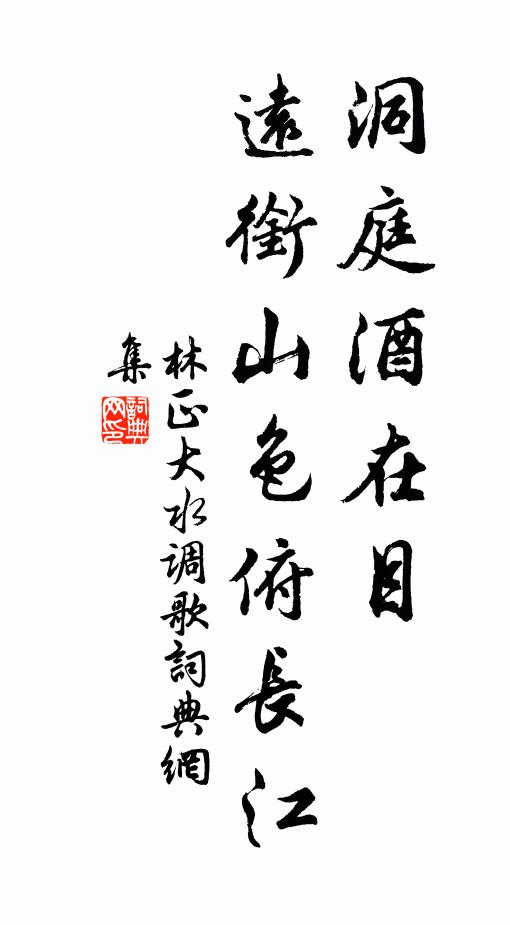 洞庭酒在目
遠銜山色俯長江
林正大水调歌詞典網
集
詞典
网印